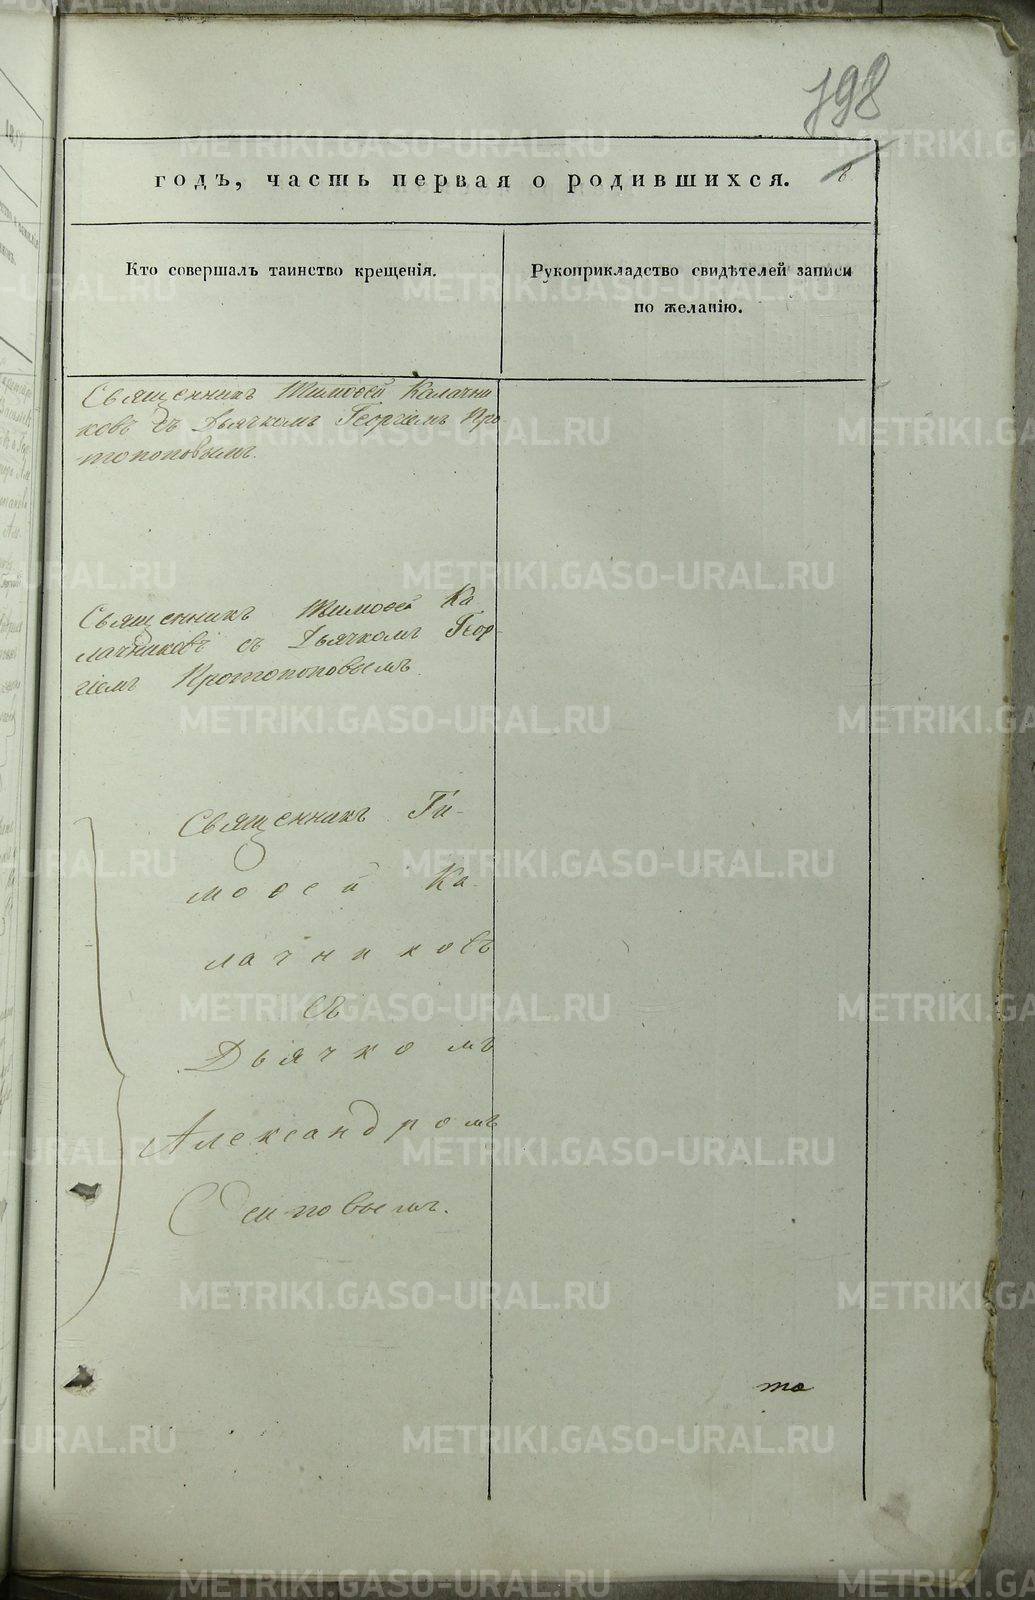 198
8
годъ, часть первая о родившихся.
Кто совершалъ таинство крещенія.
Рукоприкладство свидѣтелей записи
по желанію.
Священникъ Тимоѳей Калачни
ковъ съ Дьячкомъ Георгіемъ Про
топоповымъ.
Священникъ Тимоѳей Ка
лачниковъ съ Дьячкомъ Геор-
гіемъ Протопоповымъ.
Священникъ Ти-
моѳей Ка-
лачниковъ
съ
Дьячкомъ
Александромъ
то
METRIKI.GASO-URAL.RU